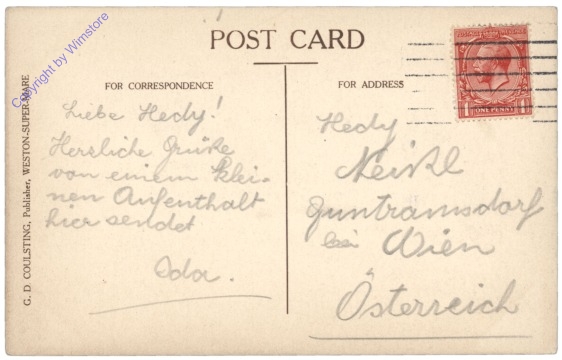 POST CARD
FOR CORRESPONDENCE
Liebe Hedy!
Herzliche Grüße
von einem klei-
nen Aufenthalt
hier sendet
Ida.
FOR ADDRESS
Hedy
Guntramsdorf
bei Wien
Österreich
ONE PENNY
G. D COULSTING, Publisher, WESTON-SUPER-MARE
Copyright by Wimstore